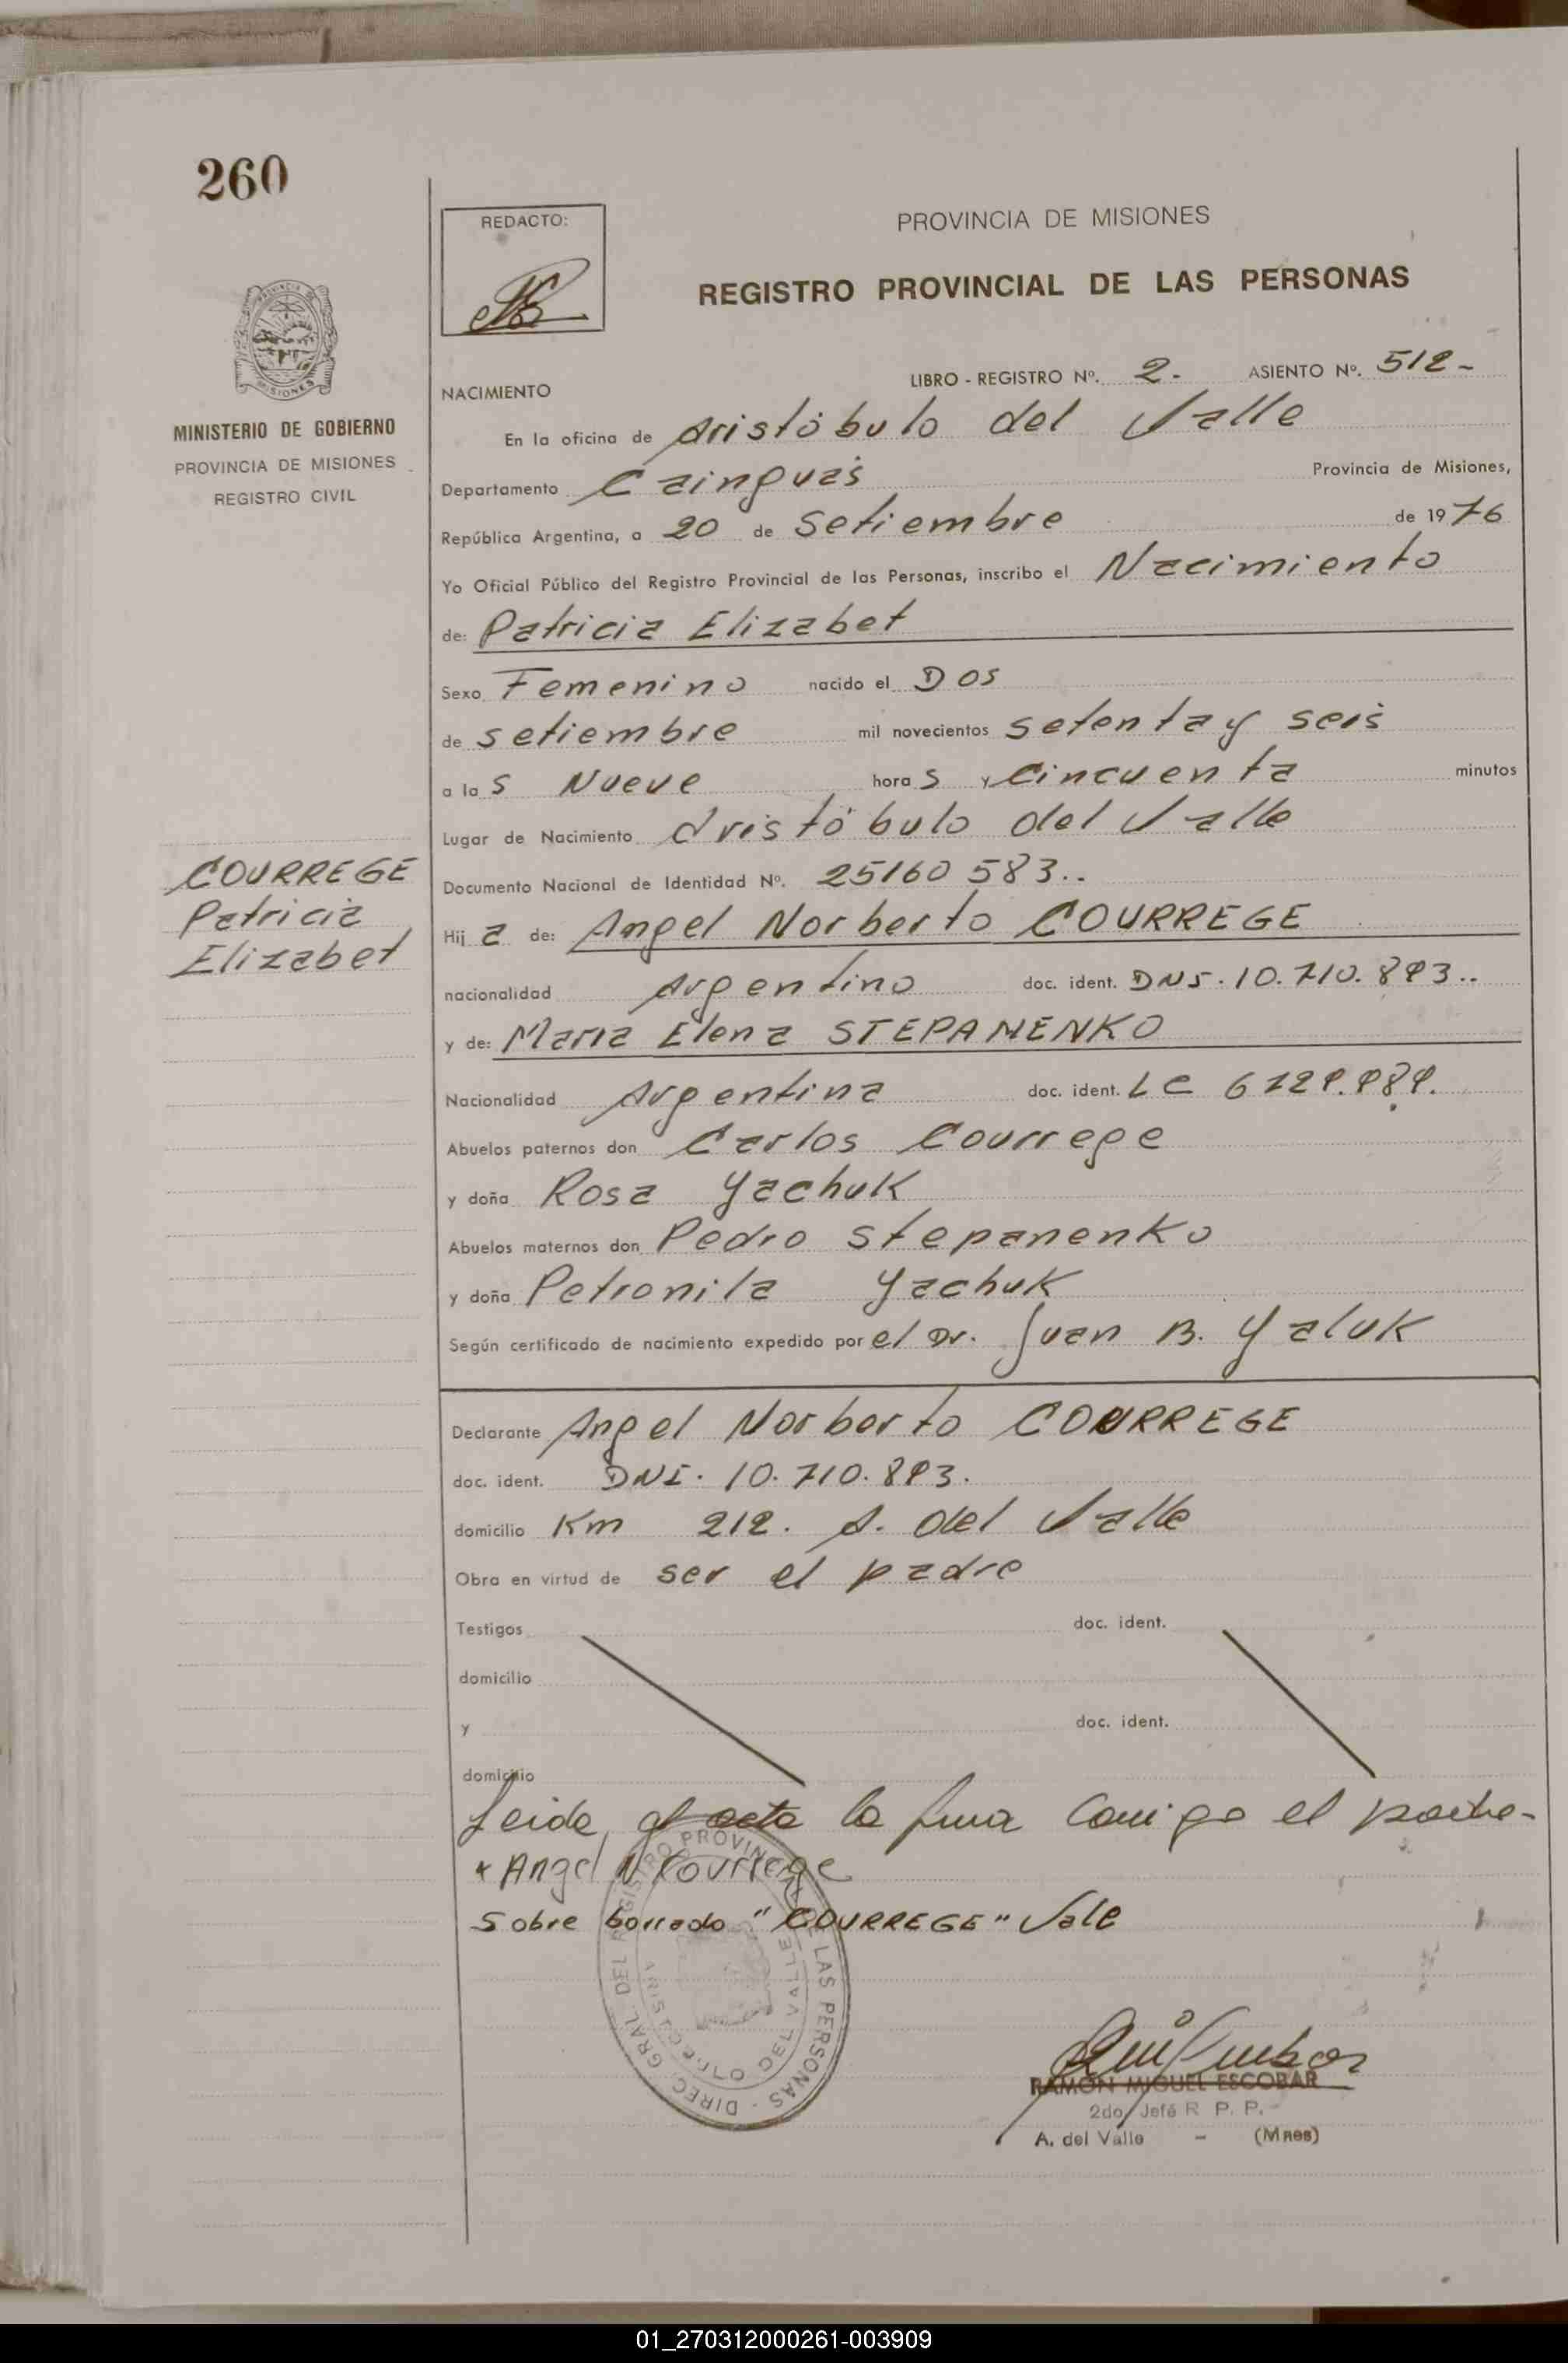 260
REDACTO:
PROVINCIA DE MISIONES
REGISTRO PROVINCIAL DE LAS PERSONAS
MINISTERIO DE GOBIERNO
PROVINCIA DE MISIONES
REGISTRO CIVIL
NACIMIENTO LIBRO - REGISTRO Nº. 2.- ASIENTO Nº. 512-
En la oficina de Aristóbulo del Valle
Departamento Cainguás Provincia de Misiones,
República Argentina, a 20 de Setiembre de 1976
Yo Oficial Público del Registro Provincial de las Personas, inscribo el Nacimiento
de: Patricia Elizabet
Sexo Femenino nacido el Dos
de setiembre mil novecientos setenta y seis
a las Nueve horas y Cincuenta minutos
Lugar de Nacimiento Aristóbulo del Valle
COURREGE
Patricia
Elizabet
Documento Nacional de Identidad Nº. 25160583..
Hija de: Angel Norberto COURREGE
nacionalidad Argentino doc. ident. DNI. 10.710.893..
y de: Maria Elena STEPANENKO
Nacionalidad Argentina doc. ident. LC
Abuelos paternos don Carlos Courrege
y doña Rosa Yachuk
Abuelos maternos don Pedro Stepanenko
y doña Petronila Yachuk
Según certificado de nacimiento expedido por el Dr. Juan B. Yaluk
Declarante Angel Norberto COURREGE
doc. ident. DNI. 10.710.893.
domicilio Km 212. A. del Valle
Obra en virtud de ser el padre
Testigos doc. ident.
domicilio
y doc. ident.
domicilio
Leida el acta la firma Conmigo el padre-
Angel N Courrege
Sobre borrado "COURREGE" Vale
DIREC. GRAL. DEL REGISTRO PROVINCIAL DE LAS PERSONAS -
ARISTOBULO DEL VALLE
RAMON MIGUEL ESCOBAR
2do. Jefe R. P. P.
A. del Valle - (Mnes)
01_270312000261-003909